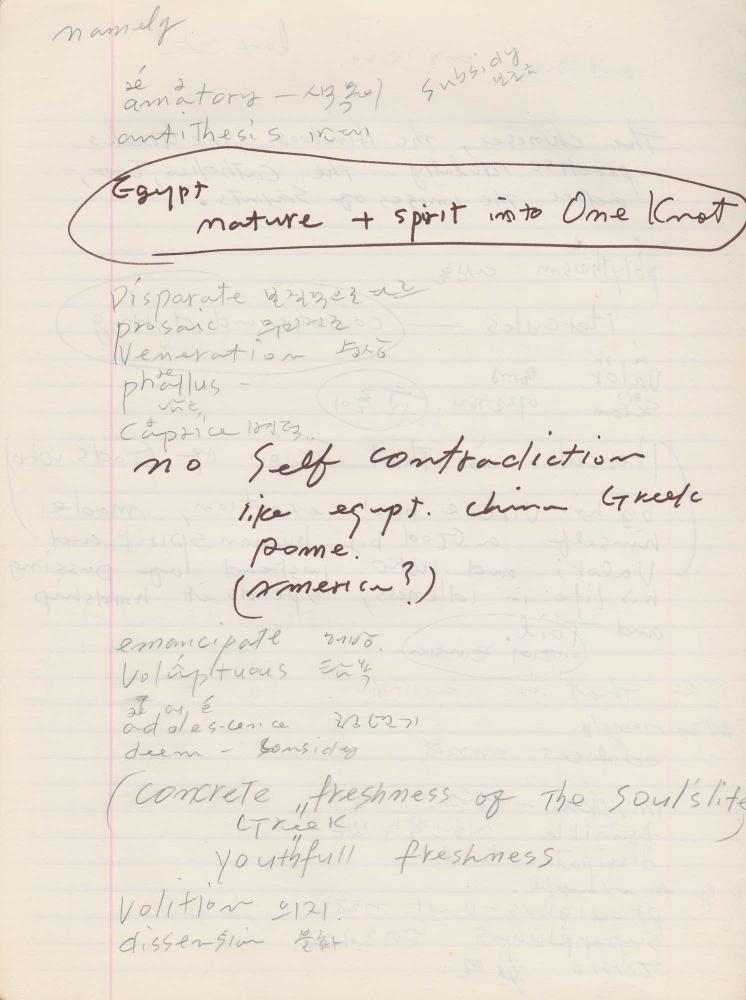 namely
subsidy 보조금
amatory —
antithesis
Egypt
nature + spirit into One Knot
Disparate 본질적으로 다른
prosaic
Veneration
phallus -
Caprice 변덕..
no Self contradiction
like egypt. china Greek
Rome.
(America?)
emancipate 해방.
Voluptuous
adolescence 청년기
deem - Considey
(concrete freshness of The Soul's life)
Greek
youthfull freshness
Volition 의지.
dissension 불화